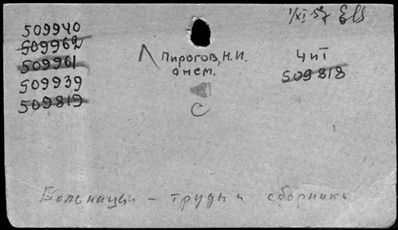 1/XI 57
509940
509962
509961
509939
509819
Пирогов, Н.И.
о нем.
Чит
509818
С
Больницы - труды и сборники